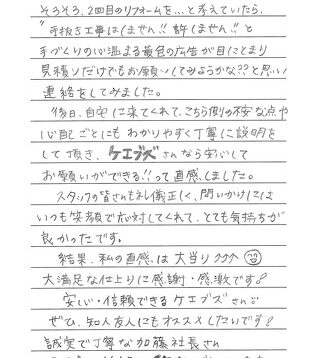 そろそろ、2回目のリフォームを…と考えていたら、
"手抜き工事はしません!!許しません!!"と
手づくりの心温まる黄色の広告が目にとまり
見積りだけでもお願いしてみようかな??と思い
連絡をしてみました。
後日、自宅に来てくれて、こちら側の不安な点や
心配ごとにもわかりやすく丁寧に説明を
して頂き、ケエブズさんなら安心して
お願いができる!!って直感しました。
スタッフの皆さんも礼儀正しく、問いかけには
いつも笑顔で応対してくれて、とても気持ちが
良かったです。
結果、私の直感は大当り
大満足な仕上りに感謝・感激です!
安心・信頼できるケエブズさん
ぜひ、知人友人にもオススメしたいです!
誠実で丁寧な加藤社長さん